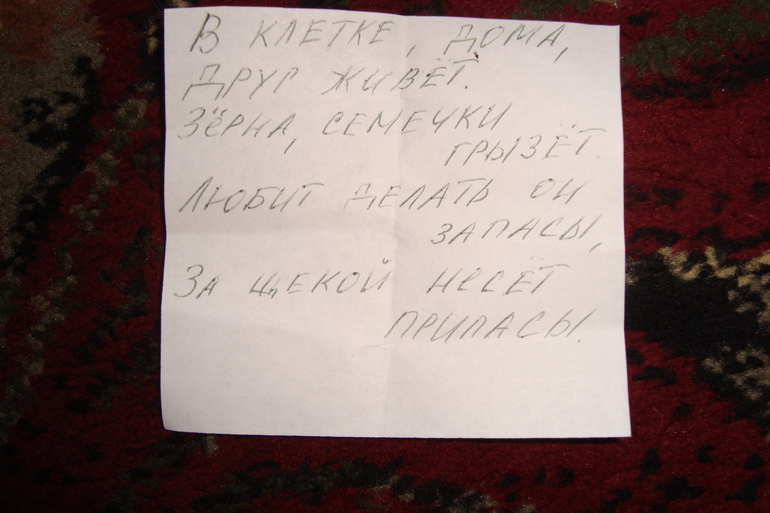 В КЛЕТКЕ, ДОМА,
ДРУГ ЖИВЁТ.
ЗЁРНА, СЕМЕЧКИ
ГРЫЗЁТ.
ЛЮБИТ ДЕЛАТЬ ОН
ЗАПАСЫ,
ЗА ЩЕКОЙ НЕСЁТ
ПРИПАСЫ.